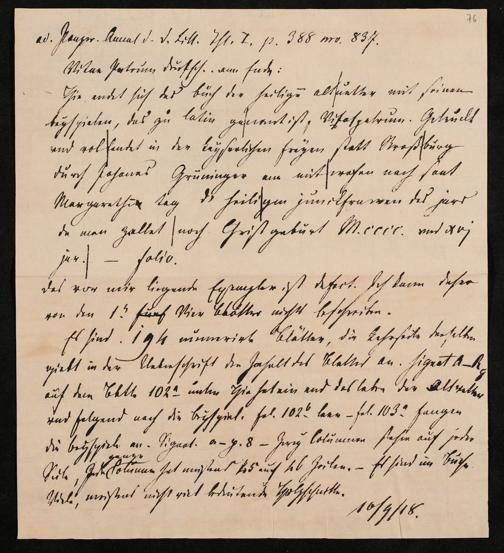 76
ad. Panzer. Annal. d. d. Litt. Thl. I. p. 388 nro. 837.
Vitae Patrum deutsch. am Ende:
Hie endet sich das buch der heiligen altvetter mit seinen
beyspielen, das zu latin genant ist, Vitaspatrum. Getruckt
und vollendet in der keyserlichen freyen statt Straßburg
durch Johanes Grüninger am mitwochen nach sant
Margarethen tag der heiligen junckfrawen des jars
da man zallet noch Christ geburt M.cccc. vnd xvj
jar. — folio.
Das vor mir liegende Exemplar ist defect. Ich kann daher
von den 1. Vier Blätter nichts beschreiben.
Es sind 194 numerirte Blätter, die Kehrseite derselben
giebt in der Ueberschrift die Zahl des Blattes an. Signat. A–
auf dem Blatte 102a unten Hie hat ein end das leben der Altvetter
und folgend nach die beyspiele. fol. 102b leer – fol. 103a fangen
die beyspiele an. Signat. a–p. 8 – Zwey Columnen stehn auf jeder
Seite, Jede ganze Columne hat meistens bis auf 46 Zeilen. – Es sind im Buche
Viele, meistens nicht viel bedeutende Holzschnitte.
10/9/18.